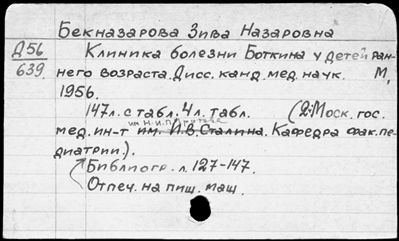 Бекназарова Зива Назаровна
Д56
639.
Клиника болезни Боткина у детей ран-
него возраста. Дисс. канд. мед. наук. М,
1956.
147 л. с табл. 4 л. табл. (2: Моск. гос.
им. Н.И.Пирогова
мед. ин-т им. И.В. Сталина. Кафедра фак. пе-
диатрии.).
Библиогр. л. 127-147.
Отпеч. на пиш. маш.